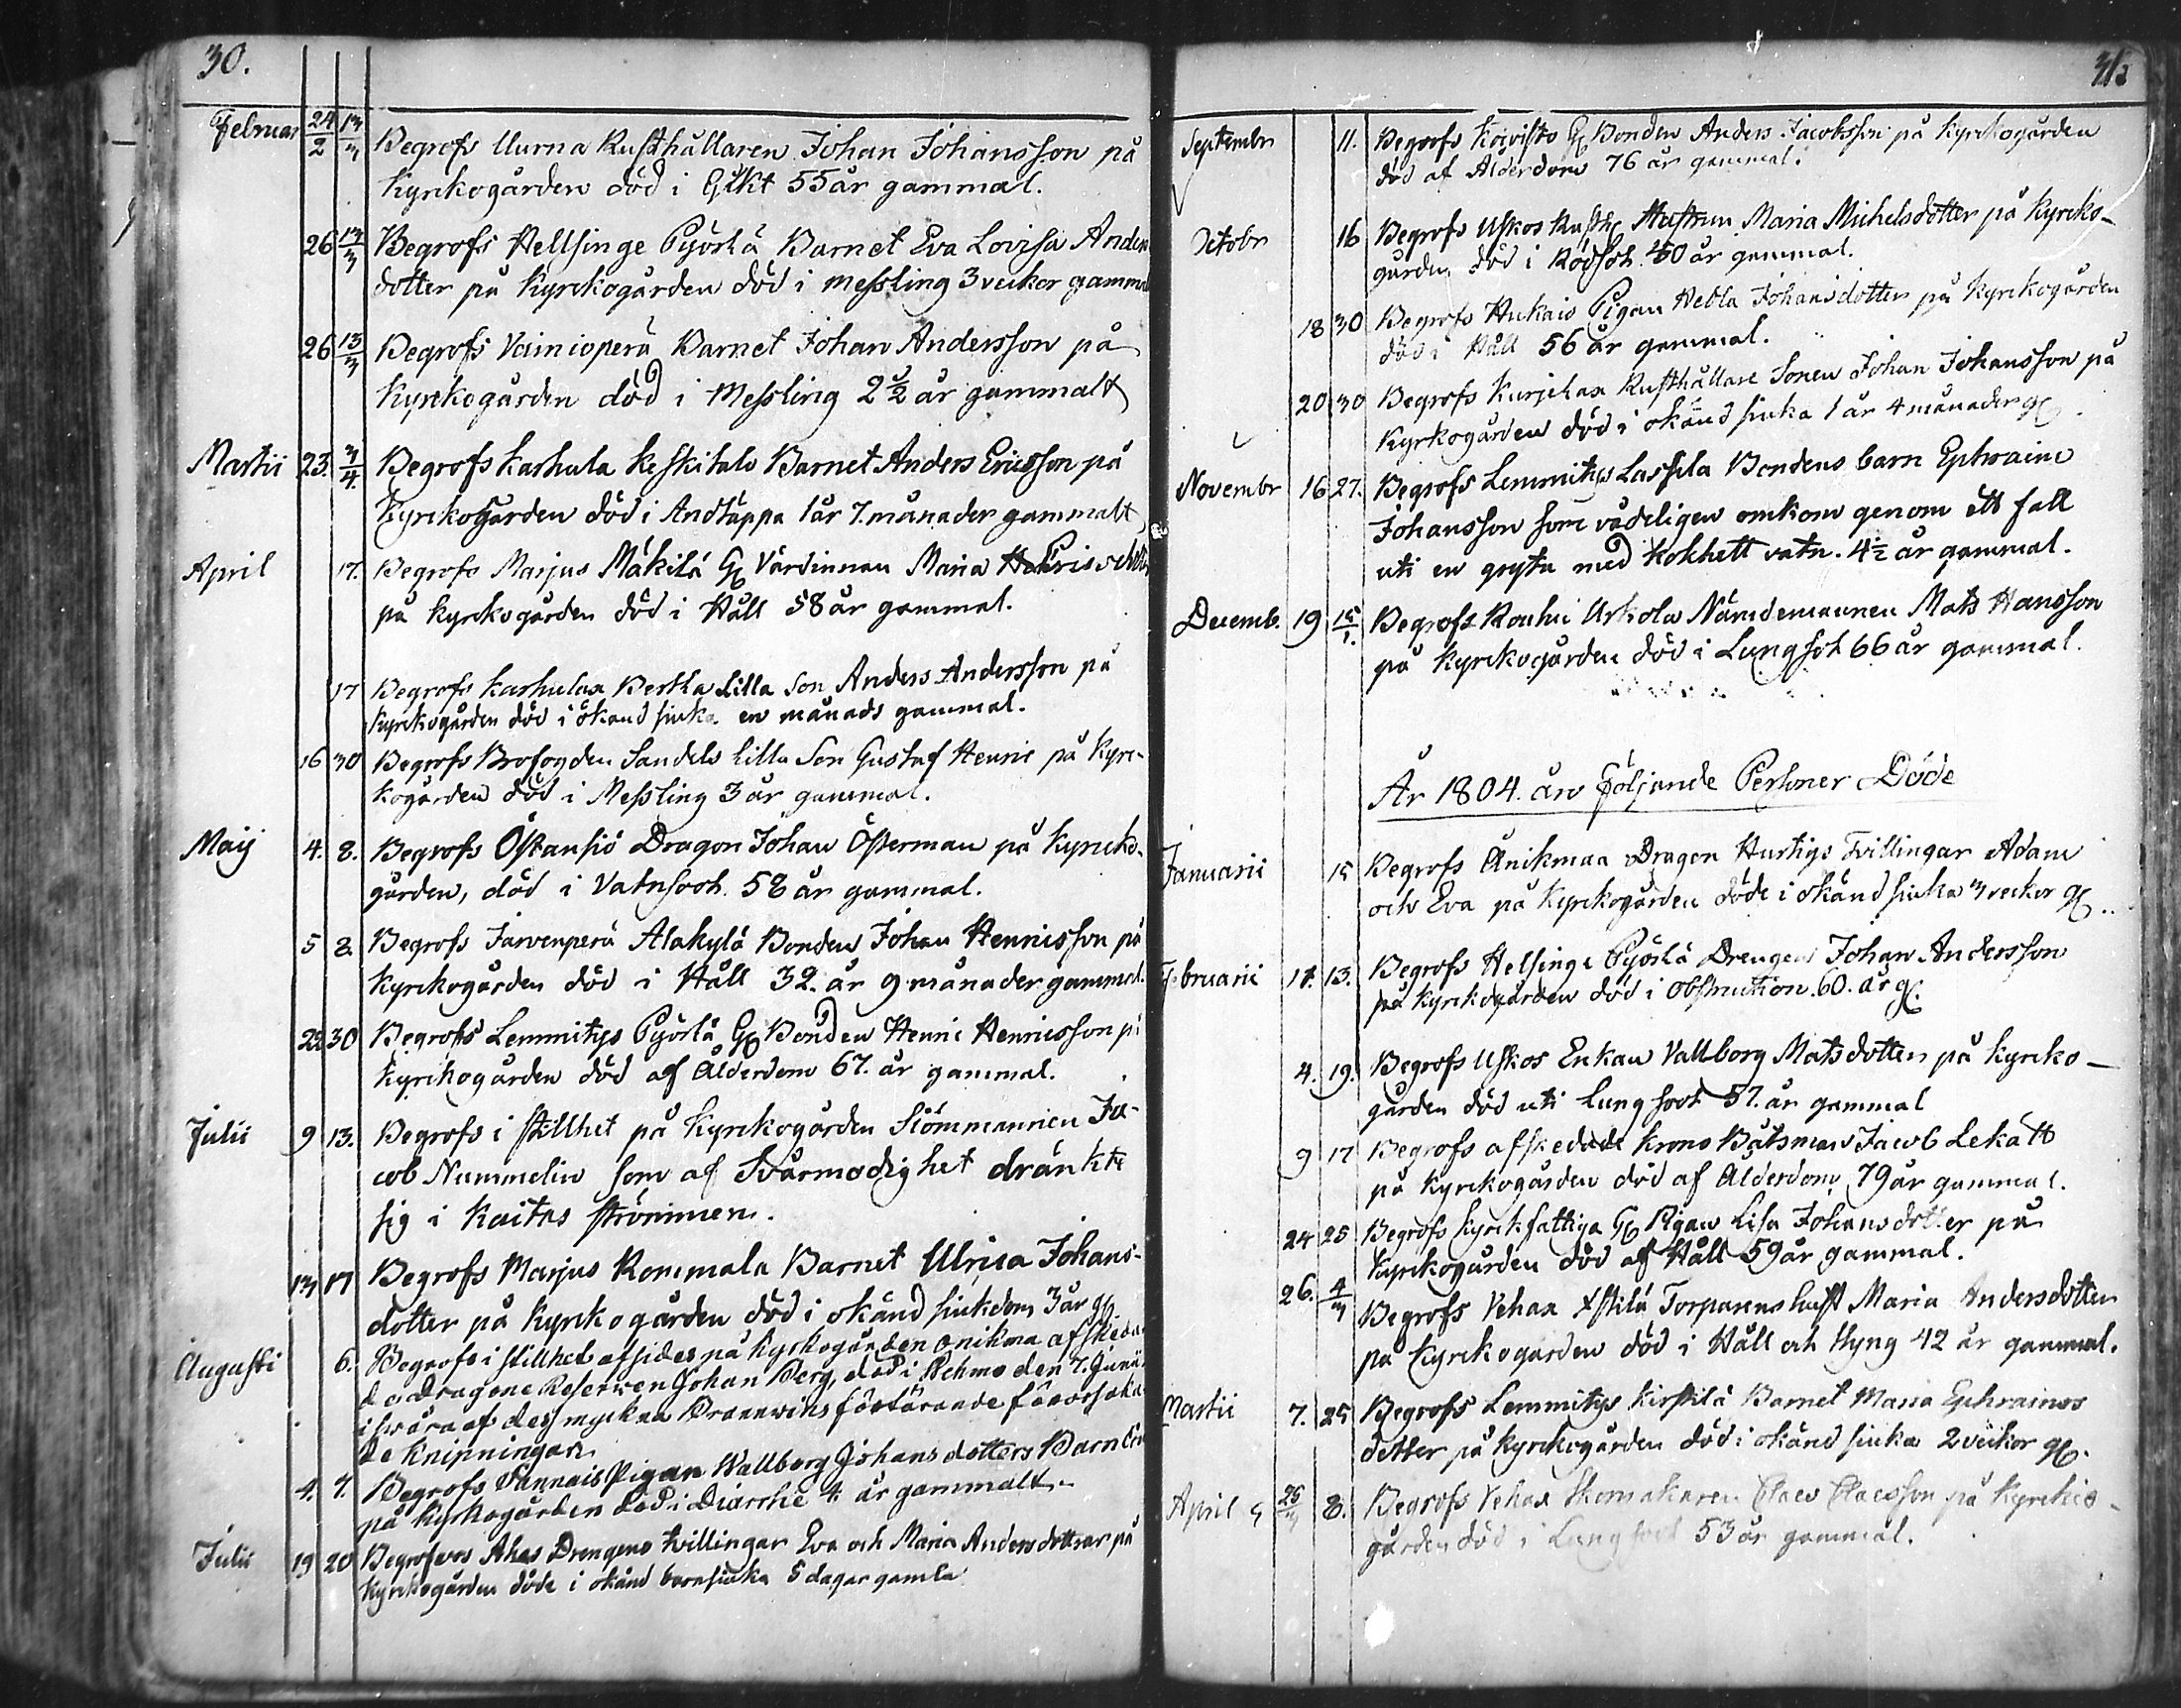 30.
Februar 24/2 13/3 Begrofs Uurna Rusthållaren Johan Johansson på
Kyrckogården död i Gikt 55 år gammal.
26 13/3 Begrofs Hellsinge Pyörlä Barnet Eva Lovisa Anders
dotter på Kyrckogården död i messling 3 veckor gammal
26 13/3 Begrofs Vainioperä Barnet Johan Andersson på
Kyrckogården död i Messling 2 1/2 år gammalt
Martii 23. 3/4. Begrofs Karhula Keskitalo Barnet Anders Ericsson på
Kyrckogården död i Andtäppa 1 år 7. månader gammalt
April 17. Begrofs Marjus Mäkilä G Värdinnan Maria
på Kyrckogården död i Håll 58 år gammal.
17 Begrofs Karhulax Bertha Lilla Son Anders Andersson på
Kyrckogården död i okänd siuka en månads gammal.
16 30 Begrofs Brofogden Sandels Lilla Son Gustaf Henric på Kyrc-
kogården död i Messling 3 år gammal.
Maij 4. 8. Begrofs Östansiö Dragon Johan Österman på Kyrcko-
gården, död i Vatnsoot. 58 år gammal.
5 8. Begrofs Jarvenperä Alakylä Bonden Johan Henricsson på
Kyrckogården död i Håll 32. år 9 månader gammal.
22 30 Begrofs Lemmitys Pyörlä G Bonden Henric Henricsson på
Kyrckogården död af Ålderdom 67. år gammal.
Julii 9 13. Begrofs i stillhet på Kyrckogården Siömmannen Ja-
cob Nummelin som af Svårmodighet dränkte
sig i Kaitas strömmen.
13 17 Begrofs Marjus Rommala Barnet Ulrica Johans-
dotter på Kyrckogården död i okänd siukdom 3 år g
Augusti 6. Begrofs i stillhet afsides på Kyrkogården Änikma afskeda
de Dragone Reserven Johan Berg, död i Vehmo den 7. Junii
i svåra af dess myckna Brannwins förtärande förorsaka
de Knipningar.
4. 7. Begrofs Pannais Pigan Wallborg Johansdotters Barn
på Kyrkogården död i Diarrhé 4. år gammalt.
Julii 19 20 Begrofvos Ahas Drengens tvillingar Eva och Maria Andersdottrar på
Kyrckogården döde i okänd barnsiuka 5 dagar gamla
31
Septembr 11. Begrofs Koivisto G Bonden Anders Jacobsson på Kyrckogården
död af Ålderdom 76 år gammal.
Octobr 16 Begrofs Uskos Rusth Hustrun Maria Michelsdotter på Kyrcko-
gården död i Rödsot. 40 år gammal.
18 30 Begrofs Hukais Pigan Hebla Johansdotter på Kyrckogården
död i Håll 56 år gammal.
20 30 Begrofs Kurjelax Rusthållare Sonen Johan Johansson på
Kyrkogården död i okänd siuka 1 år 4 månader g
Novembr 16 27. Begrofs Lemmitys Lassila Bondens barn Ephraim
Johansson som vådeligen omkom genom ett fall
uti en gryta med kokhett vatn. 4 1/2 år gammal.
Decemb. 19 15/1. Begrofs Rouhu Urkola Nämdemannen Mats Hansson
på Kyrckogården död i Lungsot 66 år gammal.
År 1804. äro följande Personer Döde
Januarii 15 Begrofs Änikmaa Dragon Hurtigs Tvillingar Adam
och Eva på Kyrckogården döde i okänd siuka 3 veckor g
Februarii 17. 13. Begrofs Helsinge Pyörlä Drengen Johan Andersson
på Kyrckogården död i Obstruction. 60. år g
4. 19. Begrofs Uskos Enkan Vallborg Matsdotter på Kyrcko-
gården död uti Lungsoot 57. år gammal
9 17 Begrofs afskedade Krono Båtsman Jacob Lekatt
på Kyrckogården död af Ålderdom 79 år gammal.
24 25 Begrofs Kyrckfattiga G Pigan Lisa Johansdotter på
Kyrckogården död af Håll 59 år gammal.
26. 4/3 Begrofs Vehax Torparens hust Maria Andersdotter
på Kyrckogården död i Håll och Styng 42 år gammal.
Martii 7. 25 Begrofs Lemmitys Kirstilä Barnet Maria Ephraims
dotter på Kyrckogården död i okänd siuka 2 veckor g
April 25/3 8. Begrofs Vehax Skomakaren Claes Claesson på Kyrcko-
gården död i Lungsoot 53 år gammal.